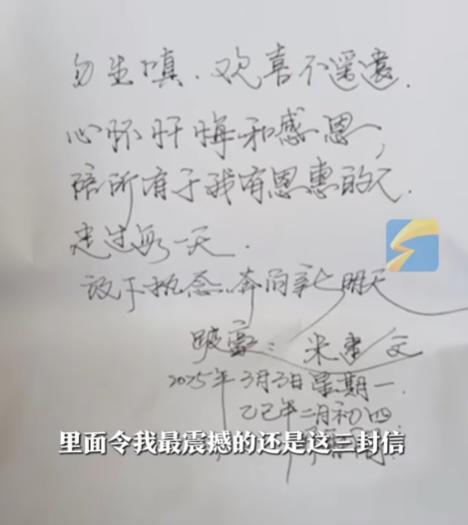 勿生嗔.欢喜不遥远.
心怀忏悔和感恩,
陪所有于我有恩惠的人.
走过每一天.
放下执念..奔向新七明天
晓寰: 米書文
2025年3月3日星期一
乙巳年二月初四
里面令我最震撼的还是这三封信